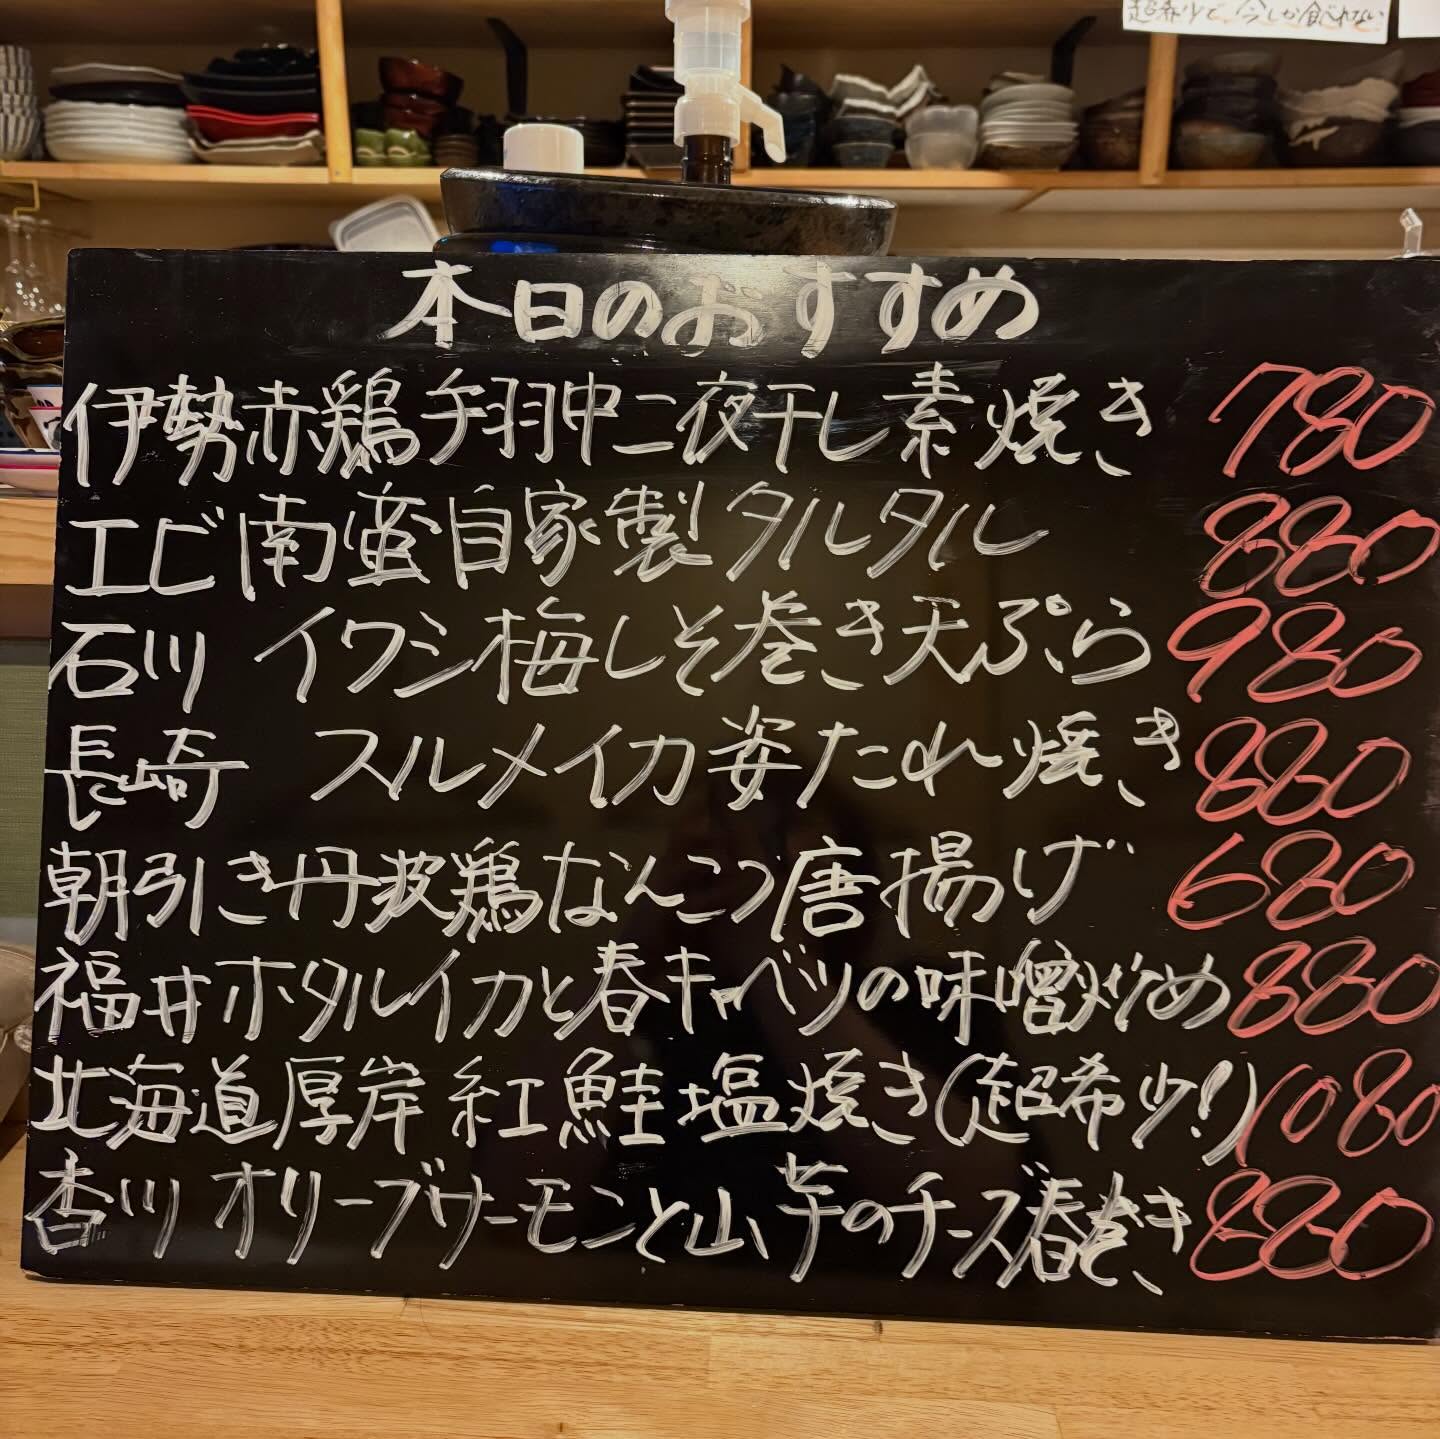 超希少で今しか食べれない
本日のおすすめ
伊勢赤鶏手羽中二夜干し素焼き 780
エビ南蛮自家製タルタル 880
石川 イワシ梅しそ巻き天ぷら 980
長崎 スルメイカ姿たれ焼き 880
朝引き丹波鶏なんこつ唐揚げ 680
福井ホタルイカと春キャベツの味噌炒め 880
北海道厚岸 紅鮭塩焼き(超希少!) 1080
香川 オリーブサーモンと山芋のチーズ春巻き 880